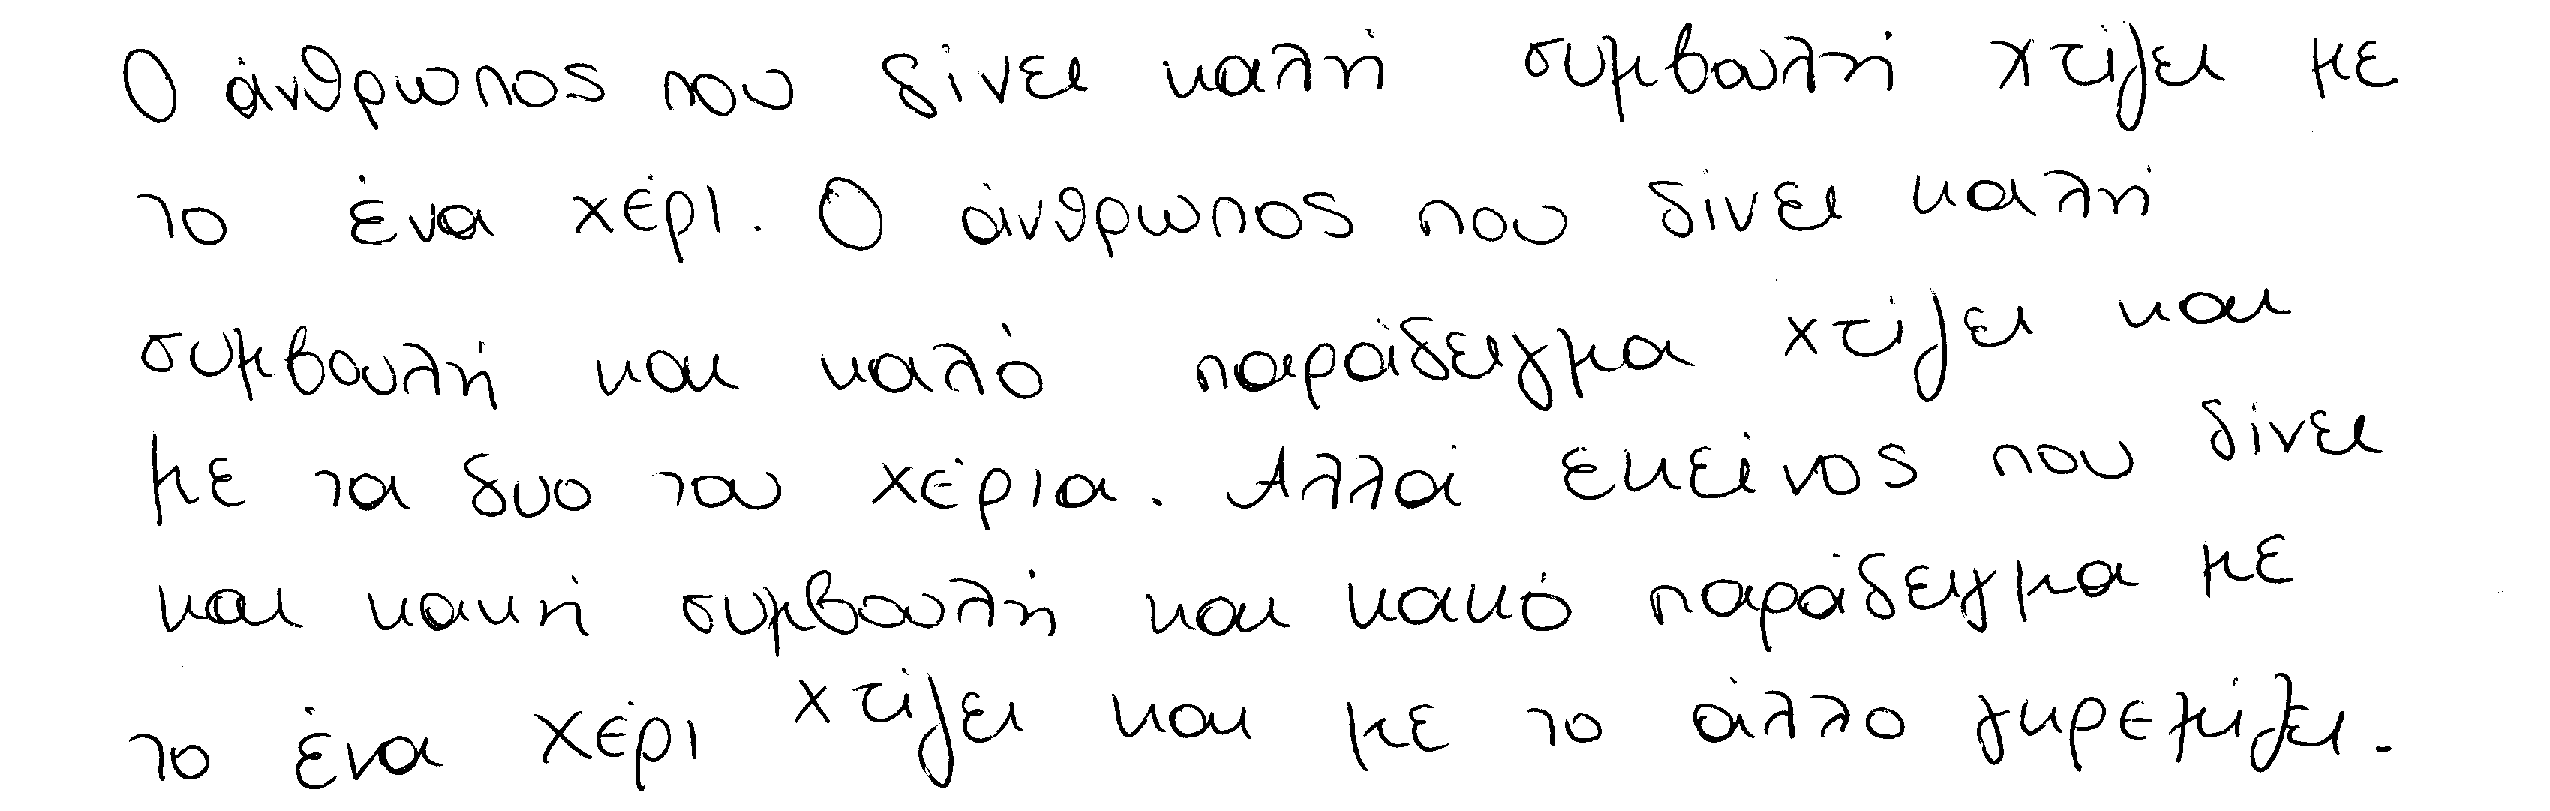 Ο άνθρωπος που δίνει καλή συμβουλή χτίζει με
το ένα χέρι. Ο άνθρωπος που δίνει καλή
συμβουλή και καλό παράδειγμα χτίζει και
με τα δυο του χέρια. Αλλά εκείνος που δίνει
και κακή συμβουλή και κακό παράδειγμα με
το ένα χέρι χτίζει και με το άλλο γκρεμίζει.